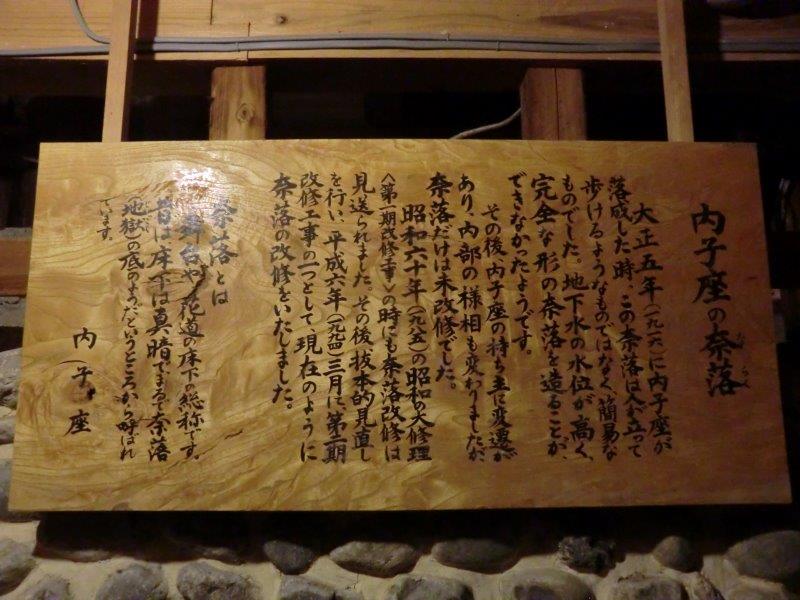 内子座の奈落
ならく
大正五年(一九一六)に内子座が
落成した時、この奈落は人が立って
歩けるようなものではなく、簡易な
ものでした。地下水の水位が高く、
完全な形の奈落を造ることが、
できなかったようです。
その後内子座の持ち主に変遷が
あり、内部の様相も変わりましたが、
奈落だけは未改修でした。
昭和六十年(一九八五)の昭和の大修理
〈第一期改修工事〉の時にも奈落改修は
見送られました。その後、抜本的見直し
を行い、平成六年(一九九四)三月に、第二期
改修工事の一つとして、現在のように
奈落の改修をいたしました。
奈落とは
舞台や花道の床下の総称です。
昔は床下は真暗でまるで奈落
(地獄)の底のようだというところから呼ばれ
ています。
内子座